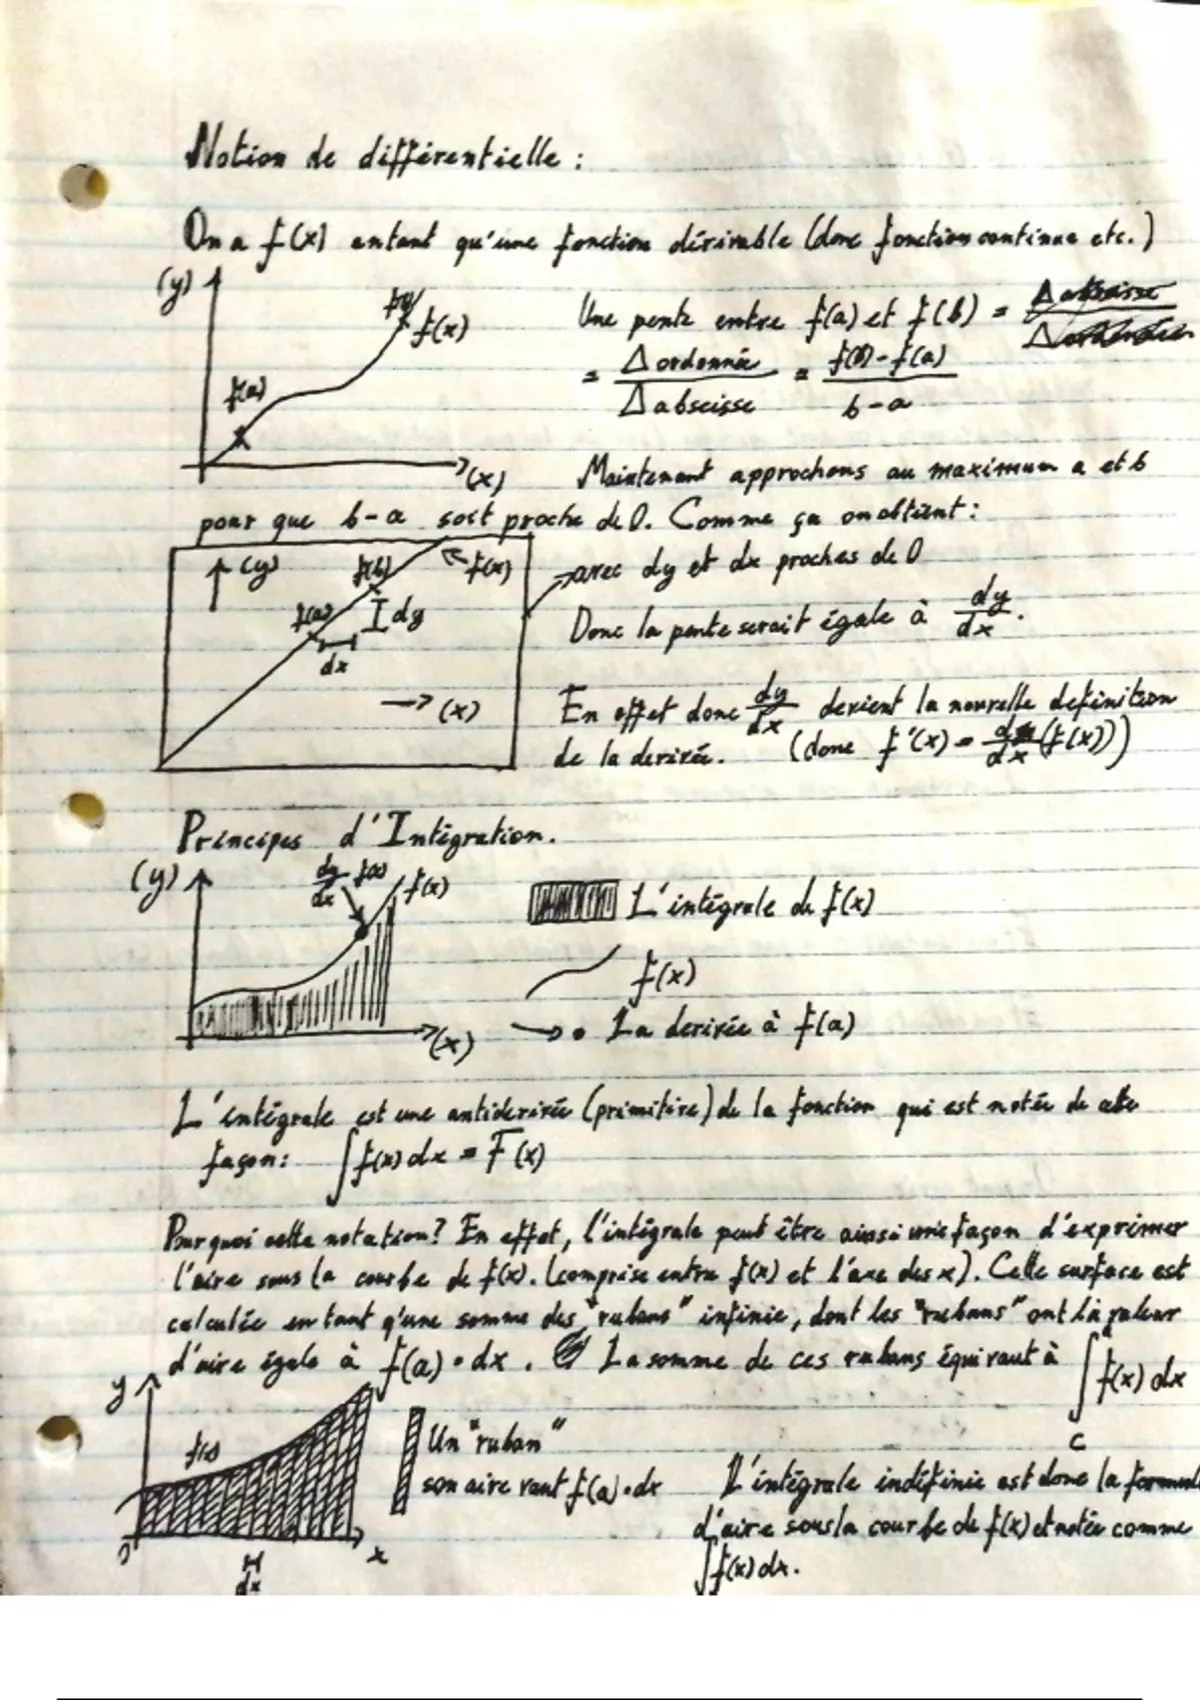 Notion de différentielle :
On a f(x) entant qu'une fonction dérivable (donc fonction continue etc.)
(y)
f(x)
f(a)
(x)
Une pente entre f(a) et f(b) =
= Δordonnée / Δabscisse = f(b)-f(a) / b-a
Maintenant approchons au maximum a et b
pour que b-a soit proche de 0. Comme ça on obtient :
(y)
f(b)
f(x)
f(a)
dy
dx
(x)
avec dy et dx proches de 0
Donc la pente serait égale à dy/dx.
En effet donc dy/dx devient la nouvelle definition
de la derivée. (donc f'(x) = d/dx (f(x)))
Principes d'Intégration.
(y)
dy/dx
f(x)
(x)
L'intégrale de f(x)
f(x)
La derivée à f(a)
L'intégrale est une antiderivée (primitive) de la fonction qui est notée de
façon : ∫f(x) dx = F(x)
Pourquoi cette notation? En effet, l'intégrale peut être ainsi une façon d'exprimer
l'aire sous la courbe de f(x). (comprise entre f(x) et l'axe des x). Cette surface est
calculée en tant q'une somme des "rubans" infinie, dont les "rubans" ont la valeur
d'aire égale à f(a)•dx. La somme de ces rubans équivaut à ∫ f(x) dx
c
y
x
dx
Un "ruban"
son aire vaut f(a)•dx
L'intégrale indéfinie est donc la
d'aire sous la courbe de f(x) et notée comme
∫f(x) dx.